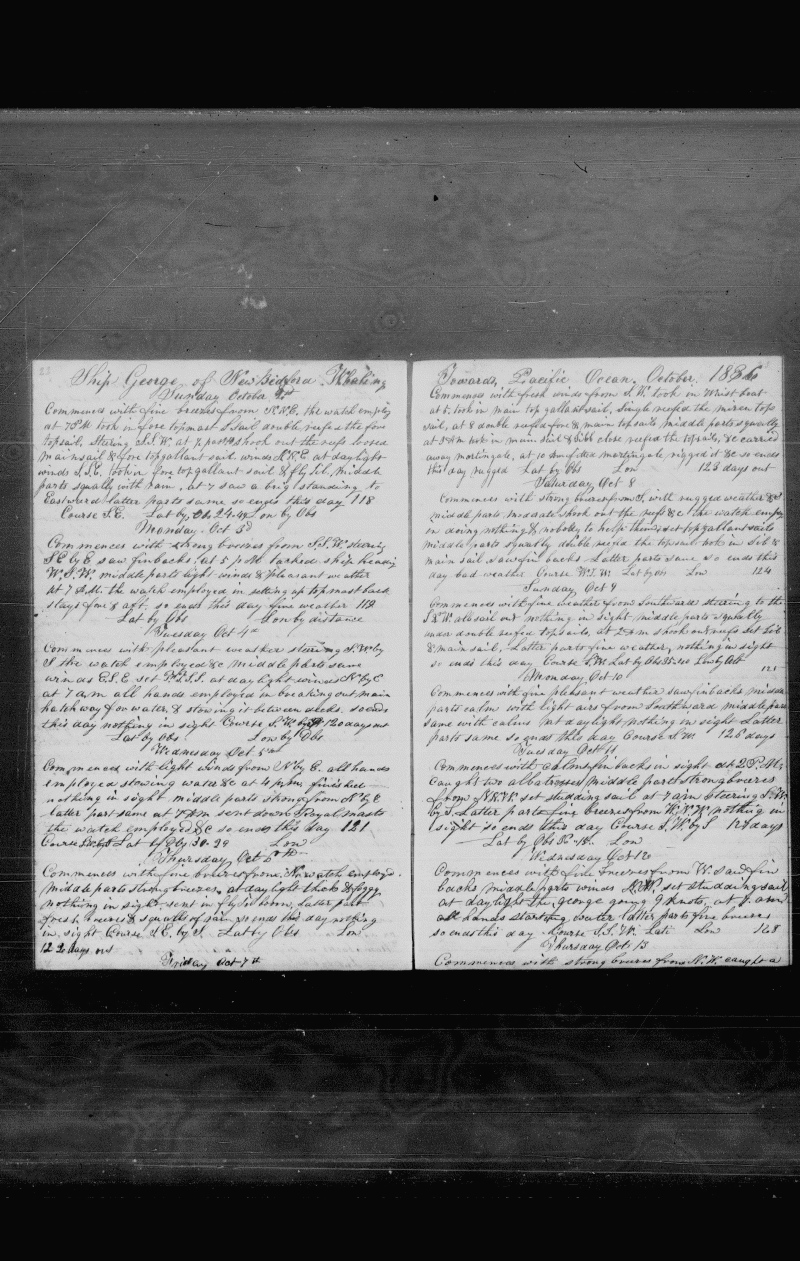 Ship George of New Bedford Whaling
Sunday October 2nd
Commences with fine breezes from N.N.E. the watch employ
at 7 P.M. took in fore topmast S sail double reefed the fore
topsail, Stering S.S.W. at shook out the reefs loosed
mainsail & fore topgallant sail winds N.N.E at daylight
winds S.S.E. took in fore topgallant sail & fly Jib, middle
parts squally with rain, at 7 saw a brig standing to
Eastward latter parts same so ends this day 118
Course S.E. Lat by Obs 24.44 Lon by Obs
Monday Oct 3d
Commences with strong breezes from S.S.W. steering
S.E by E saw finbacks. at 5 P.M. tacked ship heading
W.S.W. middle parts light winds & pleasant weather
at 7 A.M. the watch employed in setting up topmast back
stays fore & aft. so ends this day fine weather 119
Lat by Obs Lon by distance
Tuesday Oct 4th
Commences with pleasant weather steering S.W by
S the watch employed &c middle parts same
winds E.S.E set at daylight winds N by E
at 7 a,m all hands employed in breaking out main
hatchway for water, & stowing it between decks. so ends
this day nothing in sight Course S.W. by 120 days out
Lat by Obs Lon by Obs
Wednesday Oct 5th
Commences with light winds from N by E. all hands
employed stowing water &c at 4 p,m, finished
nothing in sight middle parts strong from N by E
latter part same at 7 AM sent down Royal masts
the watch employed &c so ends this day 121
Course Lat by Obs 30.29 Lon
Thursday Oct 6th
Commences with fine breezes from N, watch employed.
middle parts strong breezes, at daylight thick & foggy.
nothing in sight, sent in fly Jib boom, latter part
fresh breezes & squalls of rain, so ends this day nothing
in sight Course S.E. by S. Lat by Obs Lon
122 days out
Friday Oct 7th
Towards Pacific Ocean. October. 1836
Commences with fresh winds from S.W. took in Waist boat
at 5, took in main top gallant sail, single reefed the mizen top
sail, at 8 double reefed fore & main topsails middle parts squally
at 3 AM took in main sail & Jibb close reefed the topsails, &c carried
away martingale, at 10 martingale rigged it &c so ends
this day rugged Lat by Obs Lon 123 days out
Saturday Oct 8
Commences with strong breezes from S, with rugged weather &c
middle parts moderate shook out the reefs &c the watch employ
in doing nothing & nobody to help them set topgallant sails
middle parts squally double reefed the topsails took in Jib &
main sail saw finbacks Latter parts same so ends this
day bad weather Course W.S.W. Lat by obs Lon 124
Sunday, Oct 9
Commences with fine weather from Southward steering to the
S.W. all sail out nothing in sight middle parts squally
under double reefed topsails, at AM shook out reefs set Jib
& main sail, Latter parts fine weather, nothing in sight
so ends this day Course Lat by Obs Lon by Obs
125
Monday Oct 10
Commences with fine pleasant weather saw finbacks middle
parts calm with light airs from Southward middle parts
same with calms at daylight nothing in sight Latter
parts same so ends this day Course S.W. 126 days
Tuesday Oct 11
Commences with calms finbacks in sight at 2 P.M.
caught two albatrosses middle parts strong breezes
from N.N.W. set studding sail at 7 a,m Steering S.W.
by S. Latter parts fine breezes from W.N.W. nothing in
sight so ends this day Course S.W. by S 127 days
Lat by Obs Lon
Wednesday Oct 12
Commences with fine breezes from W. saw fin
backs middle parts winds N.W. set studding sail
at daylight the George going 9 knots, at 7. a.m
all hands starting water latter parts fine breezes
so ends this day Course S.S.W. Lat Lon 128
Thursday Oct 13
Commences with strong breezes from N.W. caught a